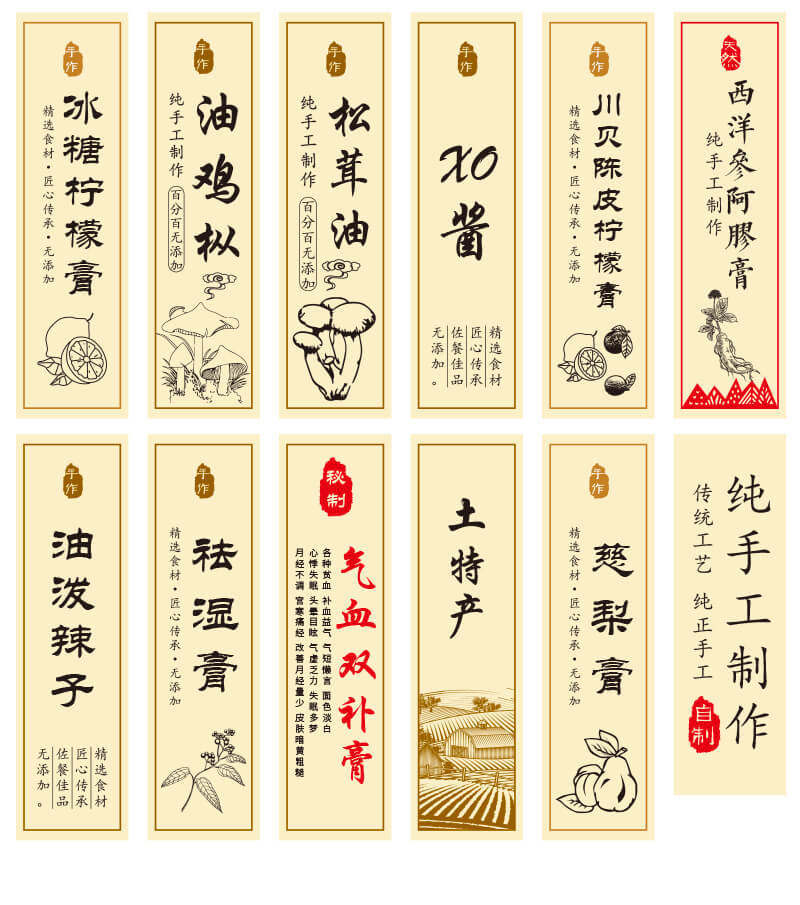 手作
冰糖柠檬膏
精选食材·匠心传承·无添加
手作
油鸡枞
纯手工制作
百分百无添加
手作
松茸油
纯手工制作
百分百无添加
手作
XO酱
精选食材
匠心传承
佐餐佳品
无添加。
手作
川贝陈皮柠檬膏
精选食材·匠心传承·无添加
天然
西洋參阿膠膏
纯手工制作
手作
油泼辣子
精选食材
匠心传承
佐餐佳品
无添加。
手作
祛湿膏
精选食材·匠心传承·无添加
秘制
气血双补膏
各种贫血 补血益气 气短懒言 面色淡白
心悸失眠 头晕目眩 气虚乏力 失眠多梦
月经不调 宫寒痛经 改善月经量少 皮肤暗黄粗糙
土特产
手作
慈梨膏
精选食材·匠心传承·无添加
纯手工制作
传统工艺 纯正手工
自制